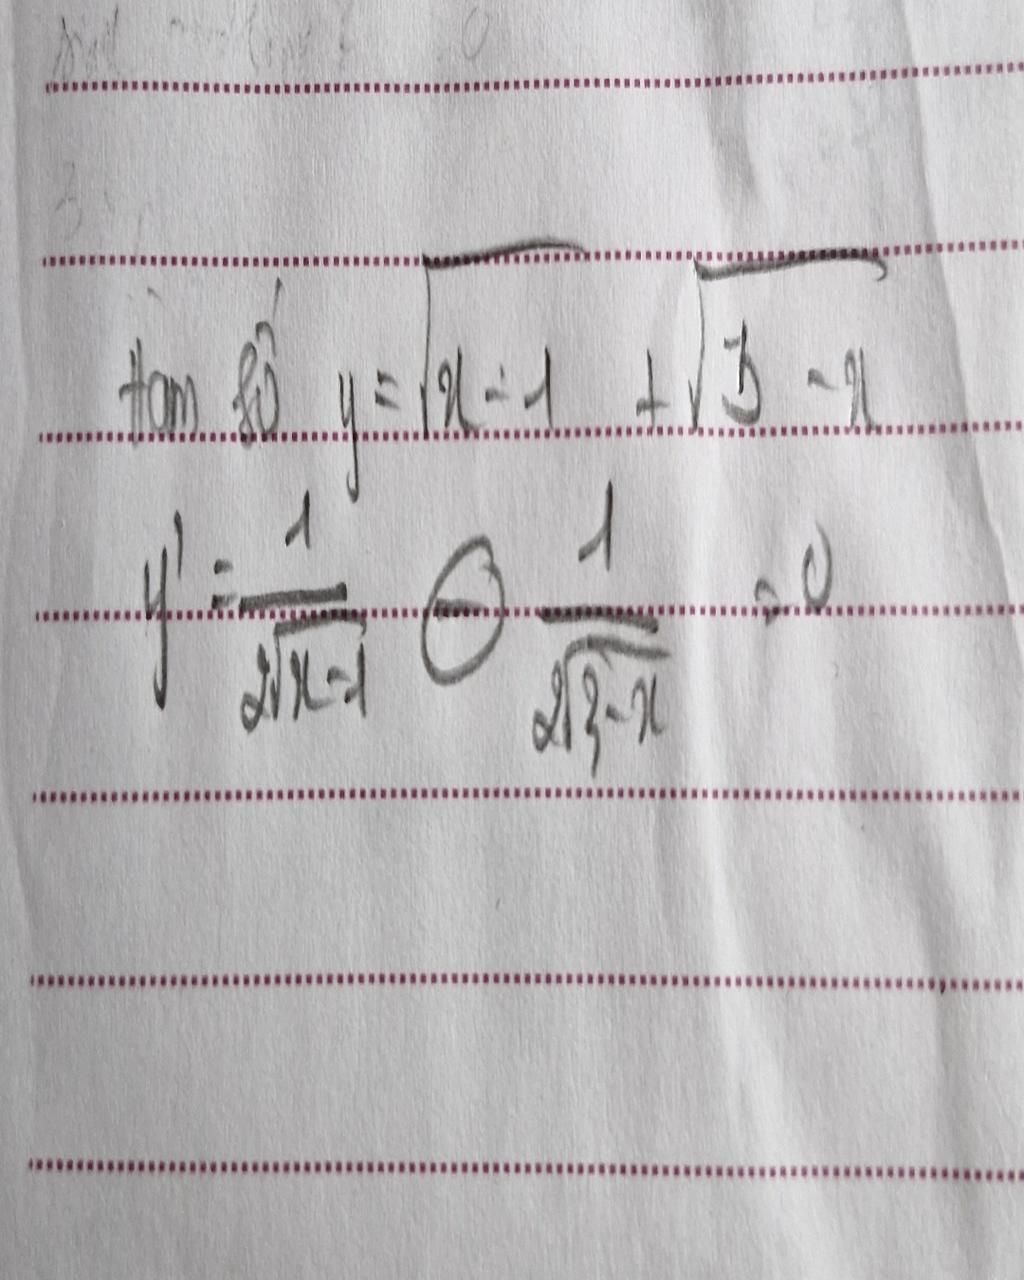 Hàm số y = √(x-1) + √(3-x)
y' = 1/(2√(x-1)) ⊖ 1/(2√(3-x)) = 0